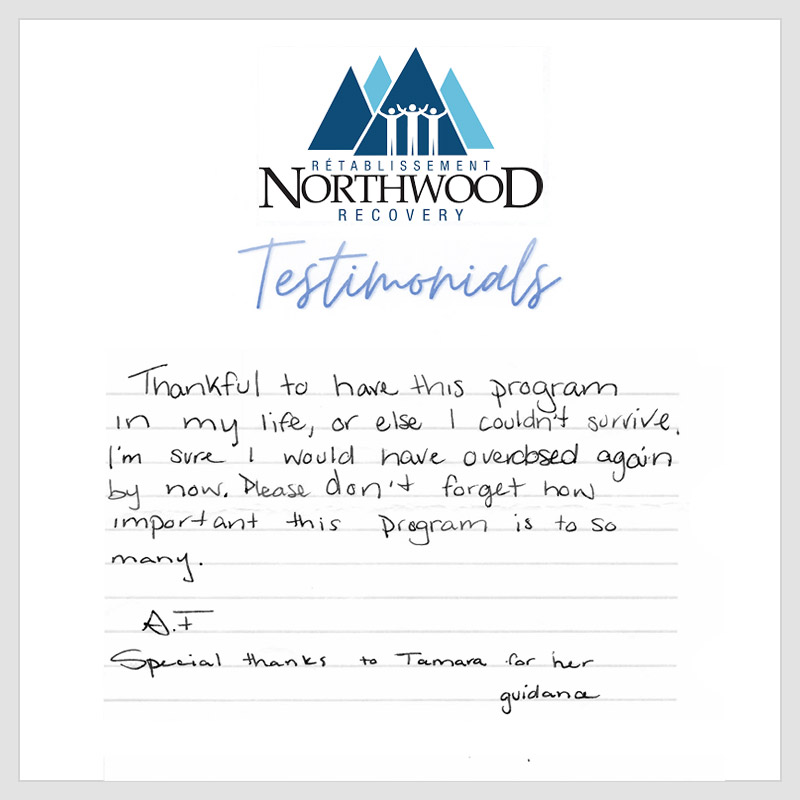 RÉTABLISSEMENT
NORTHWOOD
RECOVERY
Testimonials
Thankful to have this program
in my life, or else I couldn't survive.
I'm sure I would have overdosed again
by now. Please don't forget how
important this program is to so
many.
A.F
Special thanks to Tamara for her
guidance